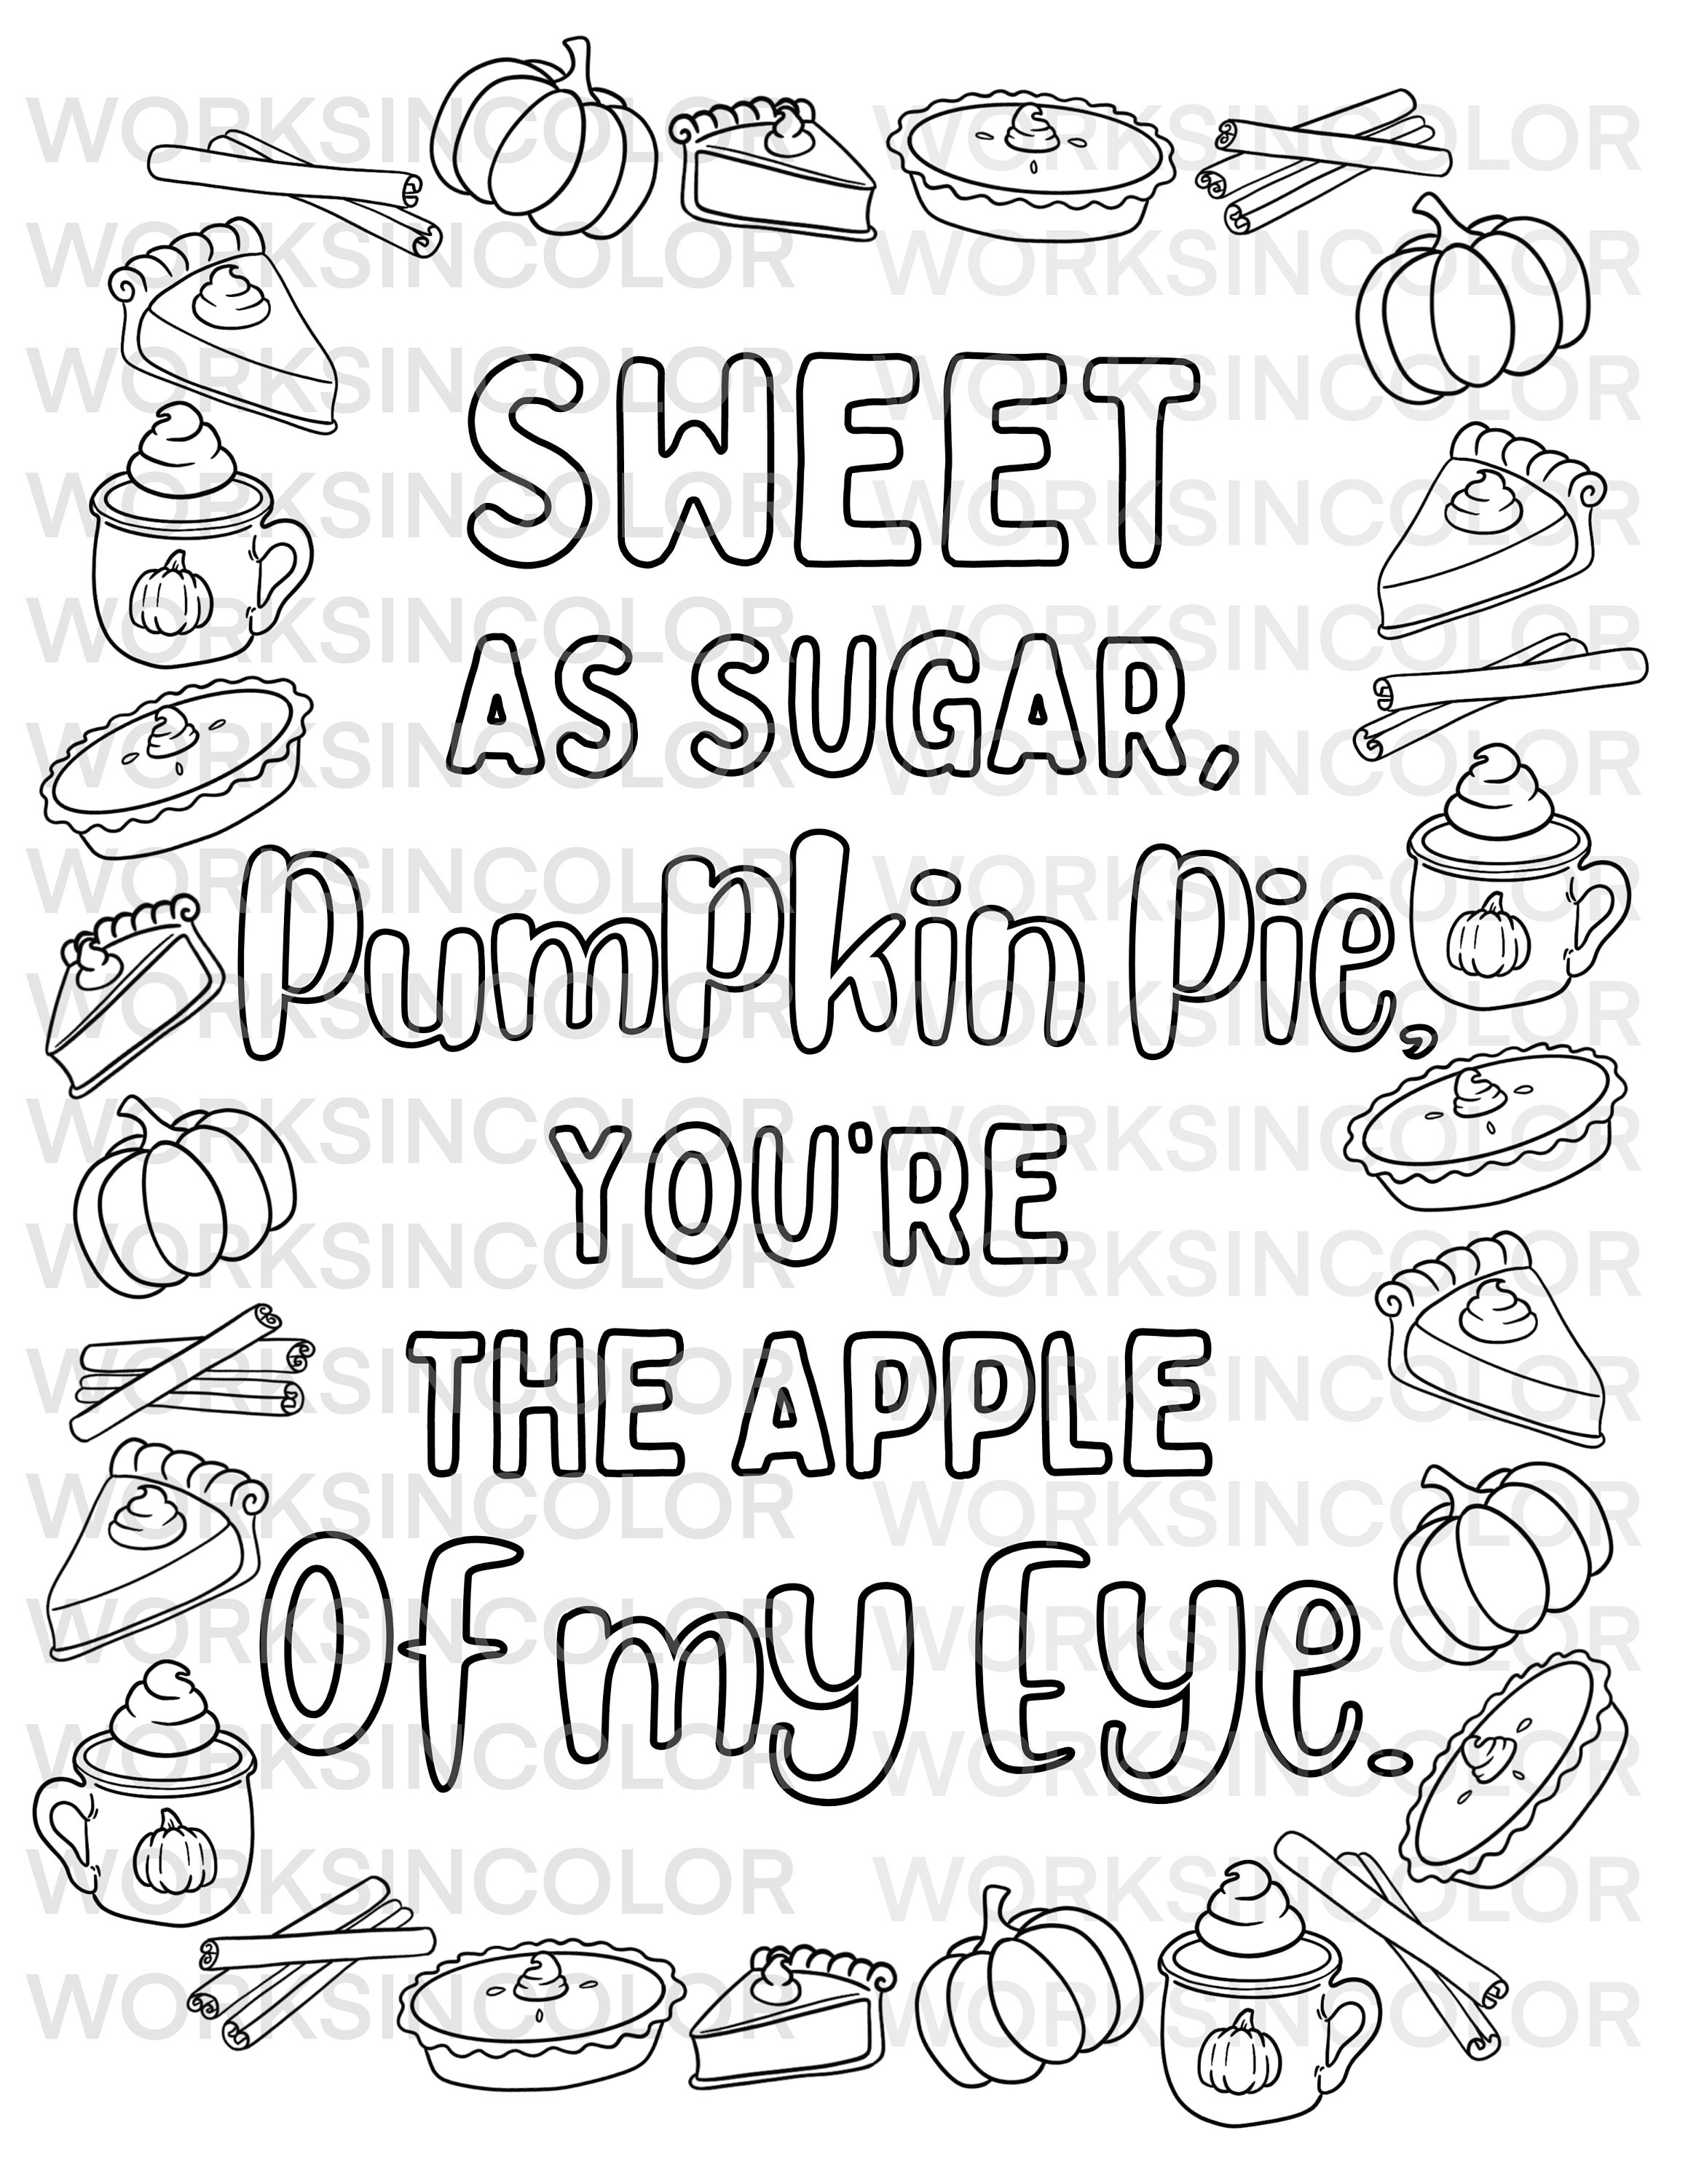 WORKSINCOLOR WORKSINCOLOR
WORKSINCOLOR WORKSINCOLOR
WORKSINCOLOR WORKSINCOLOR
SWEET
WORKSINCOLOR WORKSINCOLOR
WORKSINCOLOR WORKSINCOLOR
AS SUGAR,
WORKSINCOLOR WORKSINCOLOR
WORKSINCOLOR WORKSINCOLOR
Pumpkin Pie,
WORKSINCOLOR WORKSINCOLOR
WORKSINCOLOR WORKSINCOLOR
YOU'RE
WORKSINCOLOR WORKSINCOLOR
WORKSINCOLOR WORKSINCOLOR
THE APPLE
WORKSINCOLOR WORKSINCOLOR
WORKSINCOLOR WORKSINCOLOR
Of my Eye.
WORKSINCOLOR WORKSINCOLOR
WORKSINCOLOR WORKSINCOLOR
WORKSINCOLOR WORKSINCOLOR